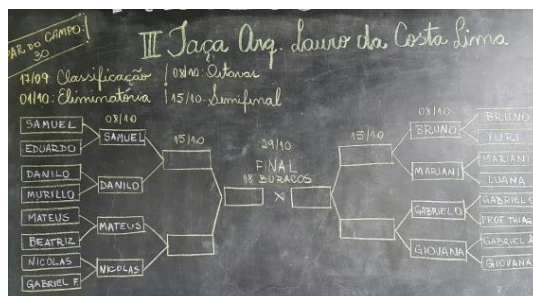 PAR DO CAMPO:
30
III Taça Arq. Lauro da Costa Lima
17/09: Classificação | 08/10: Oitavas
01/10: Eliminatória | 15/10: Semifinal
SAMUEL
EDUARDO
DANILO
MURILLO
MATEUS
BEATRIZ
NICOLAS
GABRIEL F.
08/10
SAMUEL
DANILO
MATEUS
NICOLAS
15/10
29/10
FINAL
18 BURACOS
X
15/10
08/10
BRUNO
MARIANI
GABRIEL O
GIOVANA
BRUNO
YURI
MARIANI
LUANA
GABRIEL O
PROF THIAG
GABRIEL A
GIOVANA